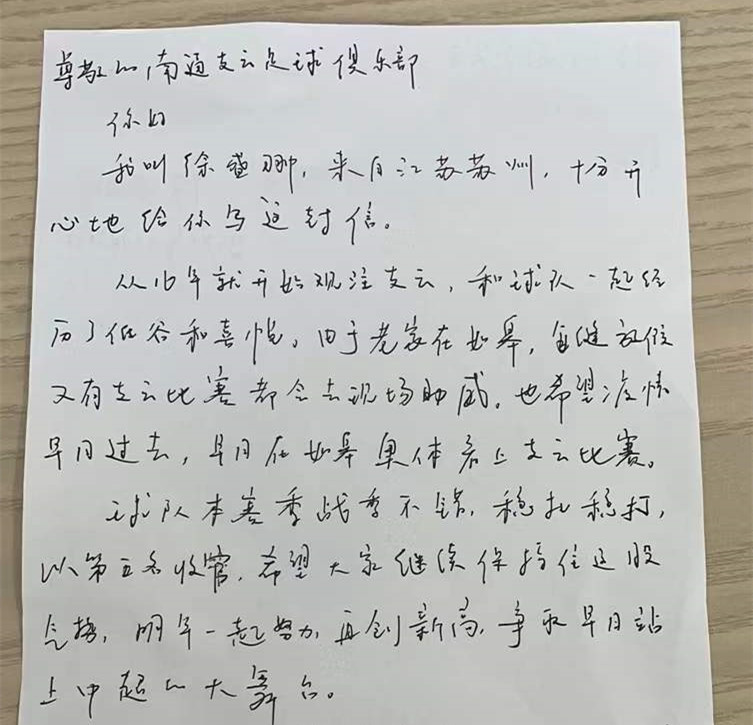 尊敬的南通支云足球俱乐部
你好
我叫徐盛翀，来自江苏苏州，十分开
心地给你写这封信。
从16年就开始观注支云，和球队一起经
历了低谷和喜悦。由于老家在如皋，每逢放假
又有支云比赛都会去现场助威。也希望疫情
早日过去，早日在如皋奥体看上支云比赛。
球队本赛季战季不错，稳扎稳打，
以第五名收官，希望大家继续保持住这股
气势，明年一起努力，再创新高，争取早日站
上中超的大舞台。